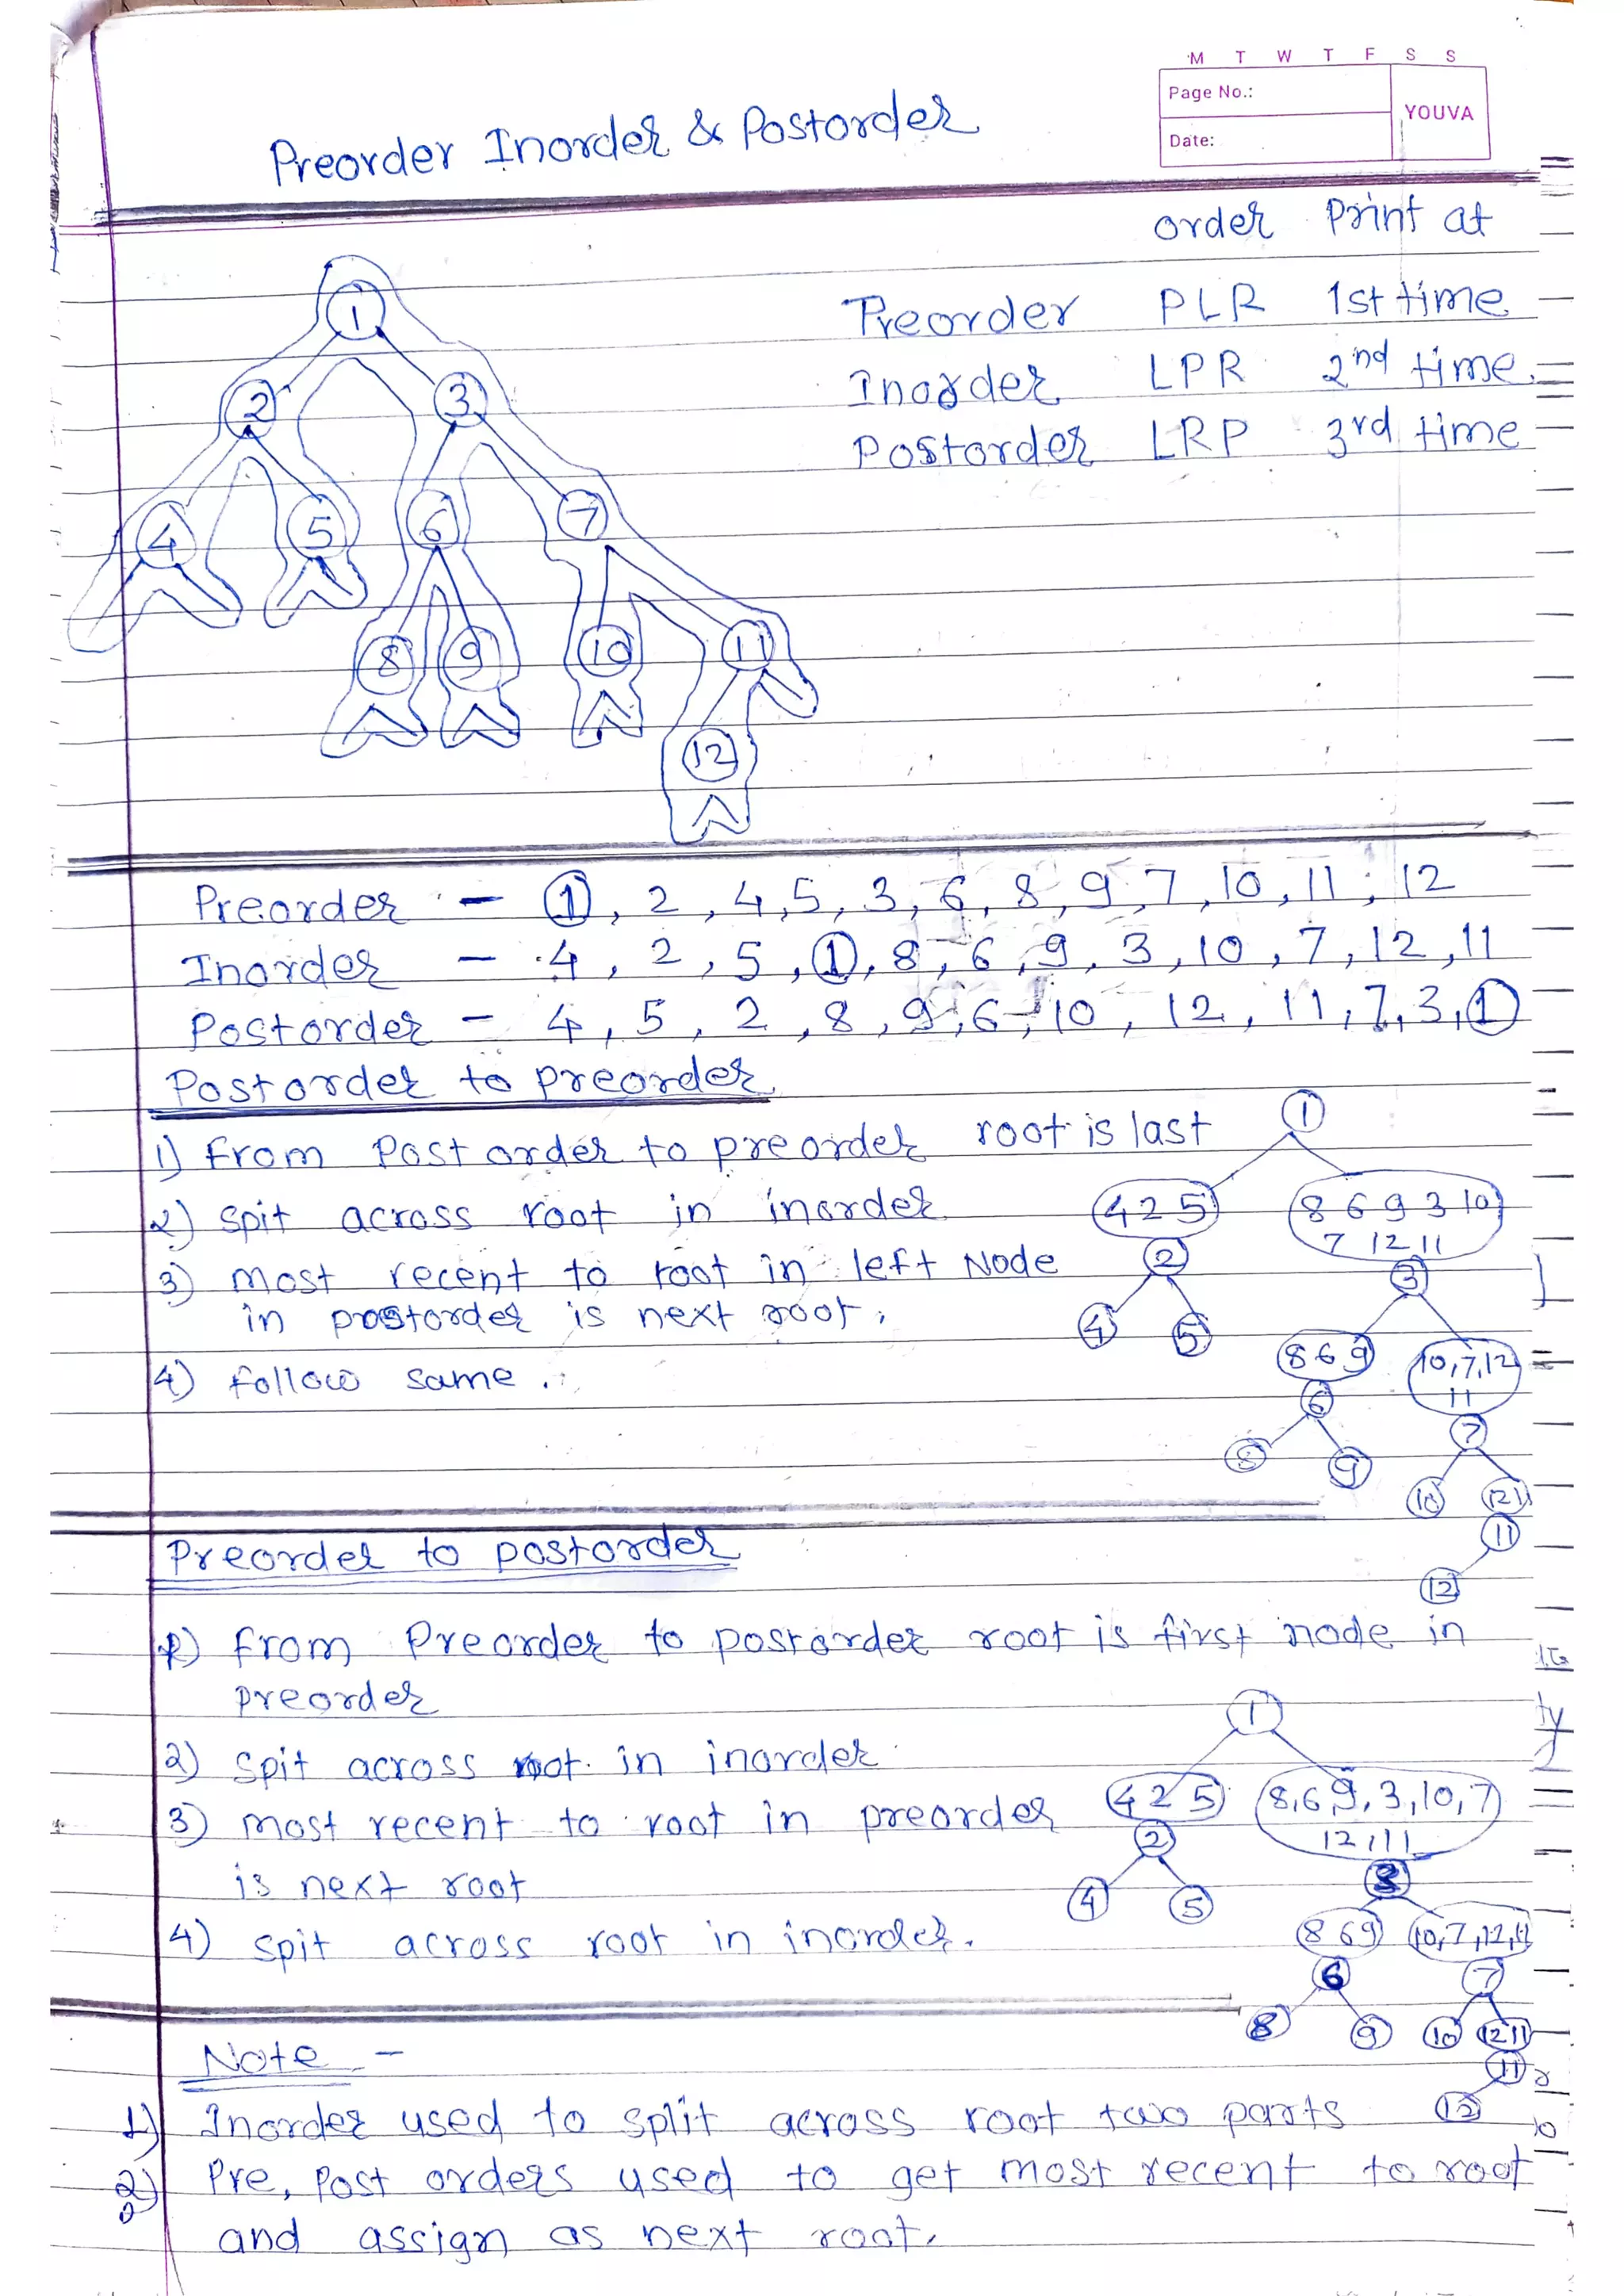 M T W T F S S
Page No.:
YOUVA
Date:
Preorder Inorder & Postorder
order Print at
Preorder PLR 1st time
Inorder LPR 2nd time.
Postorder LRP 3rd time
1
2 3
4 5 6 7
8 9 10 11
12
Preorder - 1, 2, 4, 5, 3, 6, 8, 9, 7, 10, 11, 12
Inorder - 4, 2, 5, 1, 8, 6, 9, 3, 10, 7, 12, 11
Postorder - 4, 5, 2, 8, 9, 6, 10, 12, 11, 7, 3, 1
Postorder to preorder
1) From Post order to preorder root is last
2) spit across root in inorder
3) most recent to root in left Node
in postorder is next root.
4) follow same.
1
4 2 5 8 6 9 3 10
7 12 11
2 3
4 5
8 6 9 10, 7, 12
11
6 7
8 9 10 12 11
11
12
Preorder to postorder
1) From Preorder to postorder root is first node in
preorder
2) spit across root in inorder
3) most recent to root in preorder
is next root
4) spit across root in inorder.
1
4 2 5 8, 6, 9, 3, 10, 7
12, 11
2 3
4 5
8 6 9 10, 7, 12, 11
6 7
8 9 10 12 11
11
12
Note -
1) Inorder used to split across root two parts
2) Pre, Post orders used to get most recent to root
and assign as next root.